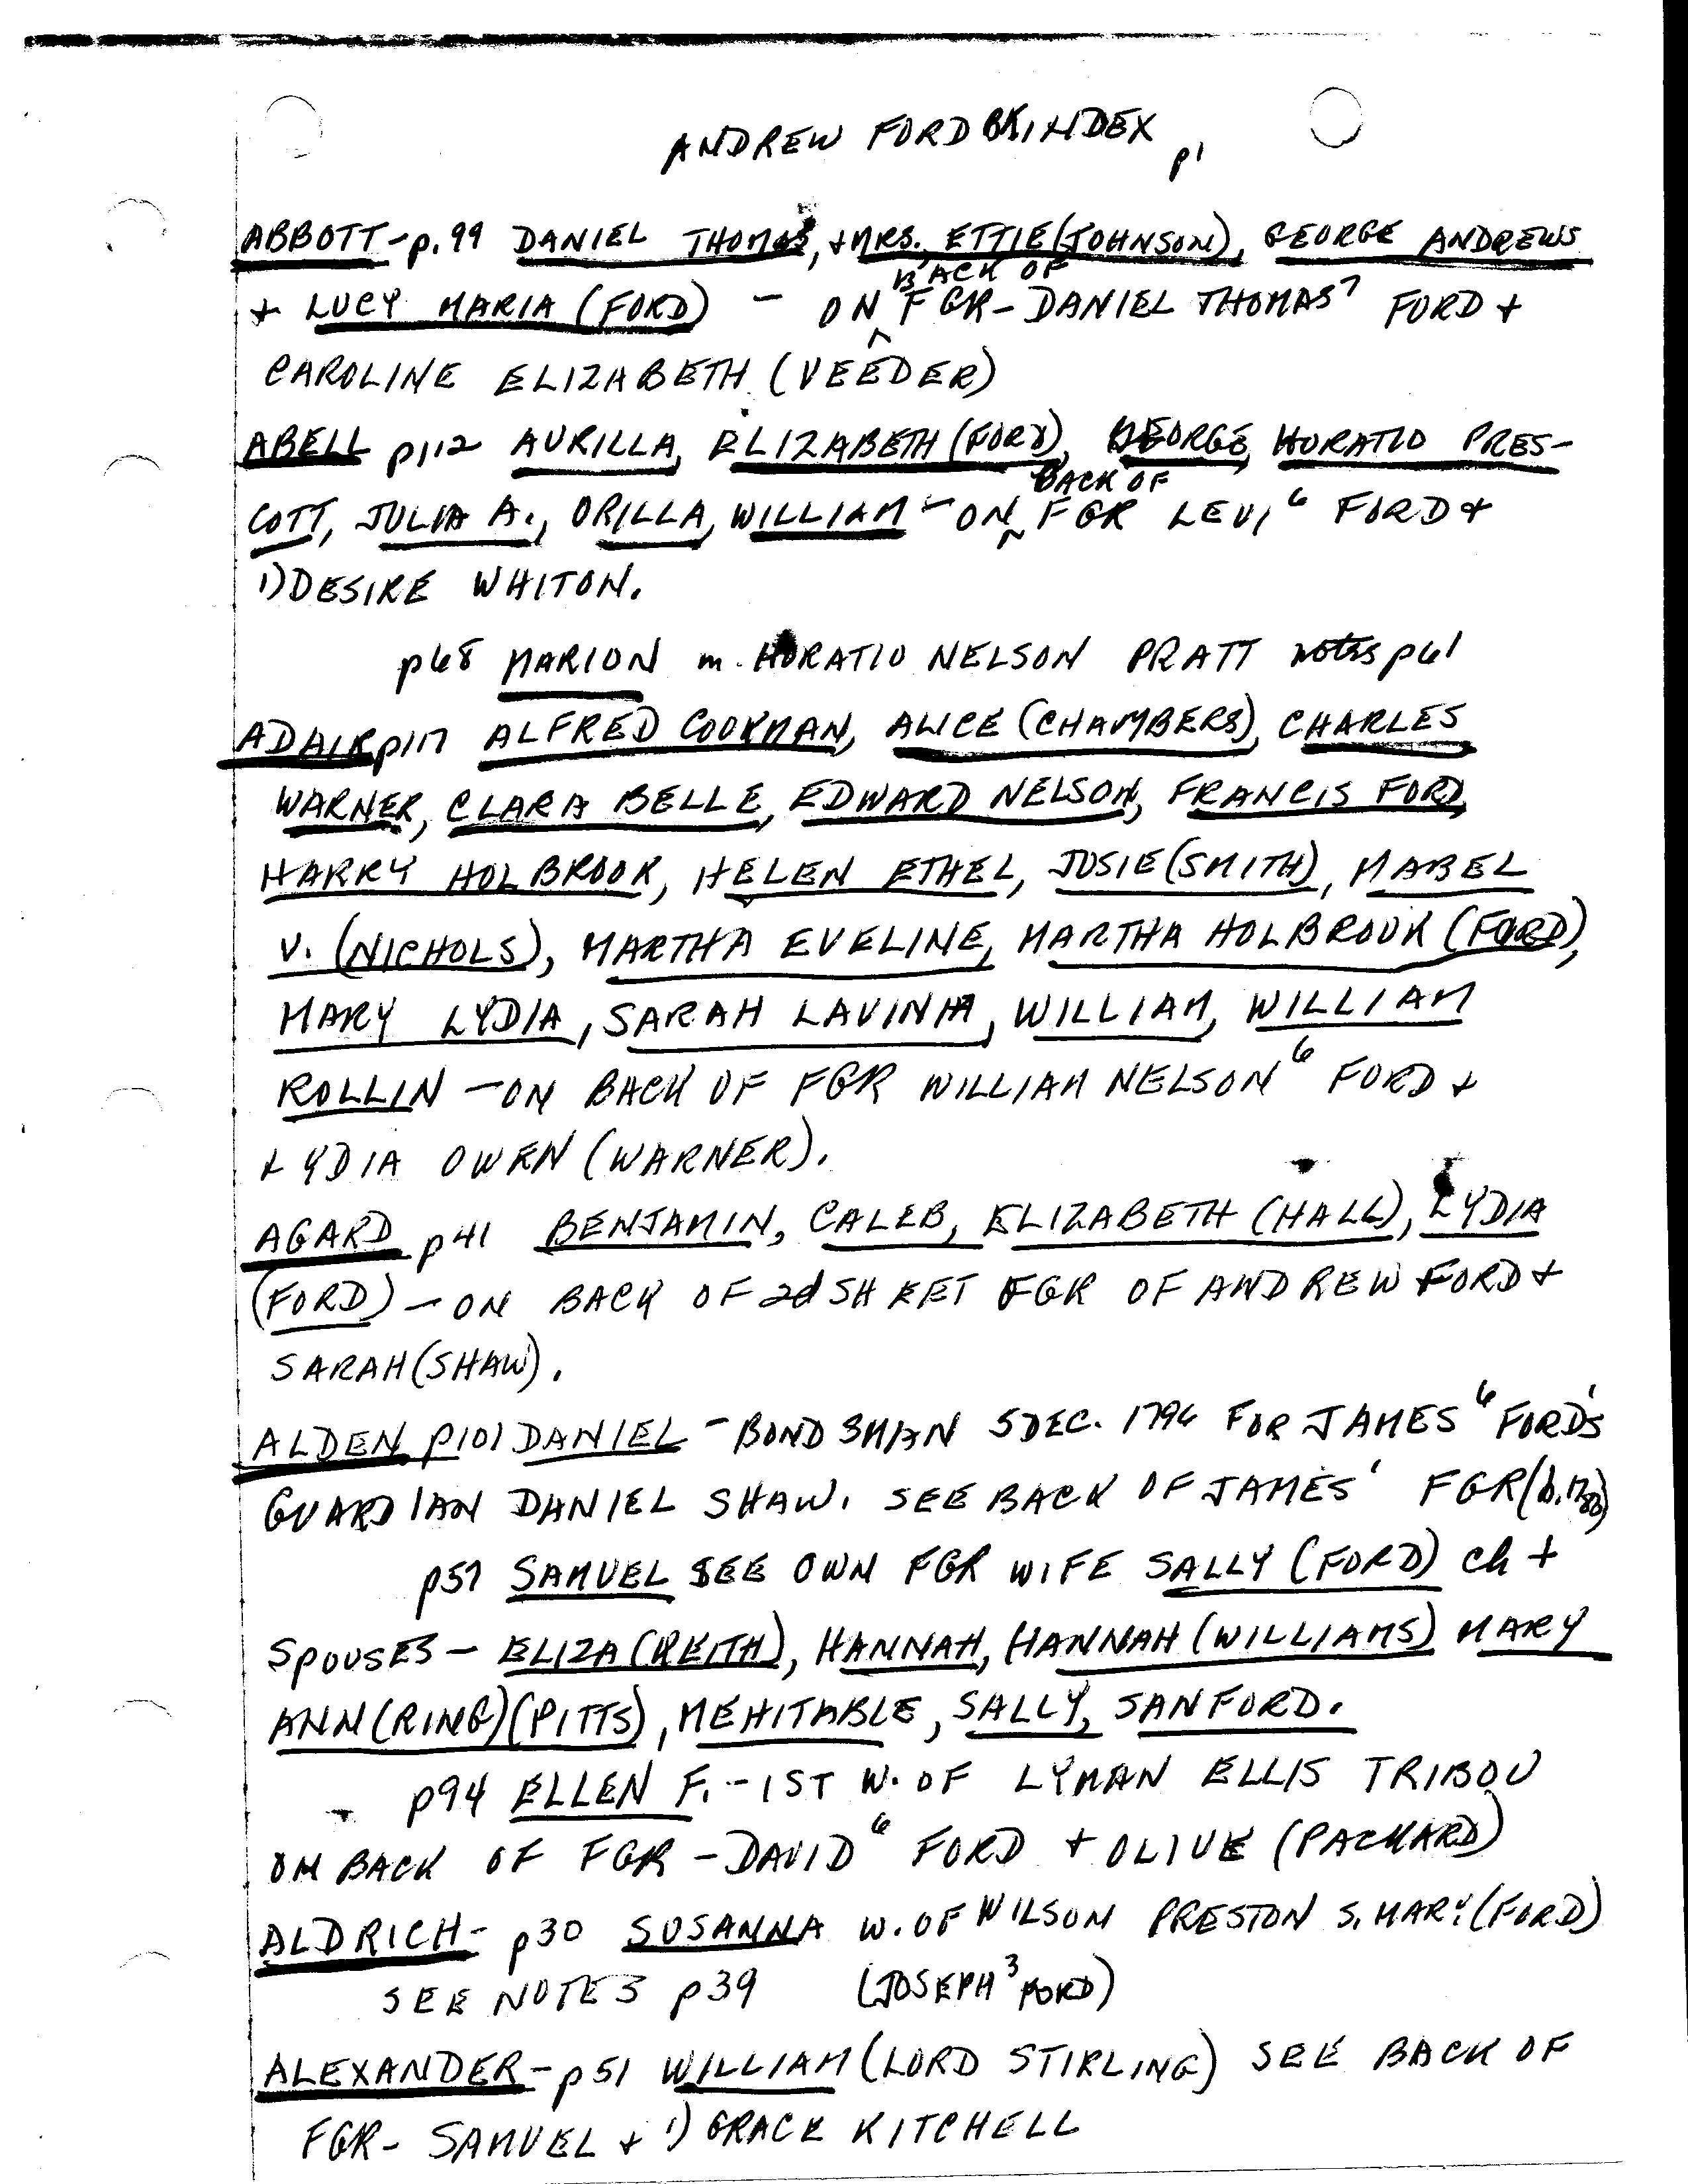 ANDREW FORD BK INDEX p1
ABBOTT-p.99 DANIEL THOMAS, + MRS. ETTIE (JOHNSON), GEORGE ANDREWS
BACK OF
+ LUCY MARIA (FORD) - ON ^ FGR - DANIEL THOMAS⁷ FORD +
CAROLINE ELIZABETH (VEEDER)
ABELL p112 AURILLA, ELIZABETH (FORD), GEORGE, HORATIO PRES-
BACK OF
COTT, JULIA A., ORILLA, WILLIAM - ON ^ FGR LEVI⁶ FORD +
1) DESIRE WHITON.
p68 MARION m. HORATIO NELSON PRATT notes p61
ADAIR p117 ALFRED COOKMAN, ALICE (CHAMBERS), CHARLES
WARNER, CLARA BELLE, EDWARD NELSON, FRANCIS FORD,
HARRY HOLBROOK, HELEN ETHEL, JOSIE (SMITH), MABEL
V. (NICHOLS), MARTHA EVELINE, MARTHA HOLBROOK (FORD),
MARY LYDIA, SARAH LAVINIA, WILLIAM, WILLIAM
ROLLIN - ON BACK OF FGR WILLIAM NELSON⁶ FORD +
LYDIA OWEN (WARNER).
AGARD p41 BENJAMIN, CALEB, ELIZABETH (HALL), LYDIA
(FORD) - ON BACK OF 2d SHEET FGR OF ANDREW FORD +
SARAH (SHAW).
ALDEN p101 DANIEL - BONDSMAN 5 DEC. 1796 FOR JAMES⁶ FORD'S
GUARDIAN DANIEL SHAW. SEE BACK OF JAMES' FGR (b.1783)
p57 SAMUEL SEE OWN FGR WIFE SALLY (FORD) ch +
SPOUSES - ELIZA (KEITH), HANNAH, HANNAH (WILLIAMS) MARY
ANN (RING) (PITTS), MEHITABLE, SALLY, SANFORD.
p94 ELLEN F. - 1ST W. OF LYMAN ELLIS TRIBOU
ON BACK OF FGR - DAVID⁶ FORD + OLIVE (PACKARD)
ALDRICH - p30 SUSANNA W. OF WILSON PRESTON S. MARY (FORD)
SEE NOTES p39 (JOSEPH³ FORD)
ALEXANDER - p51 WILLIAM (LORD STIRLING) SEE BACK OF
FGR - SAMUEL + 1) GRACE KITCHELL